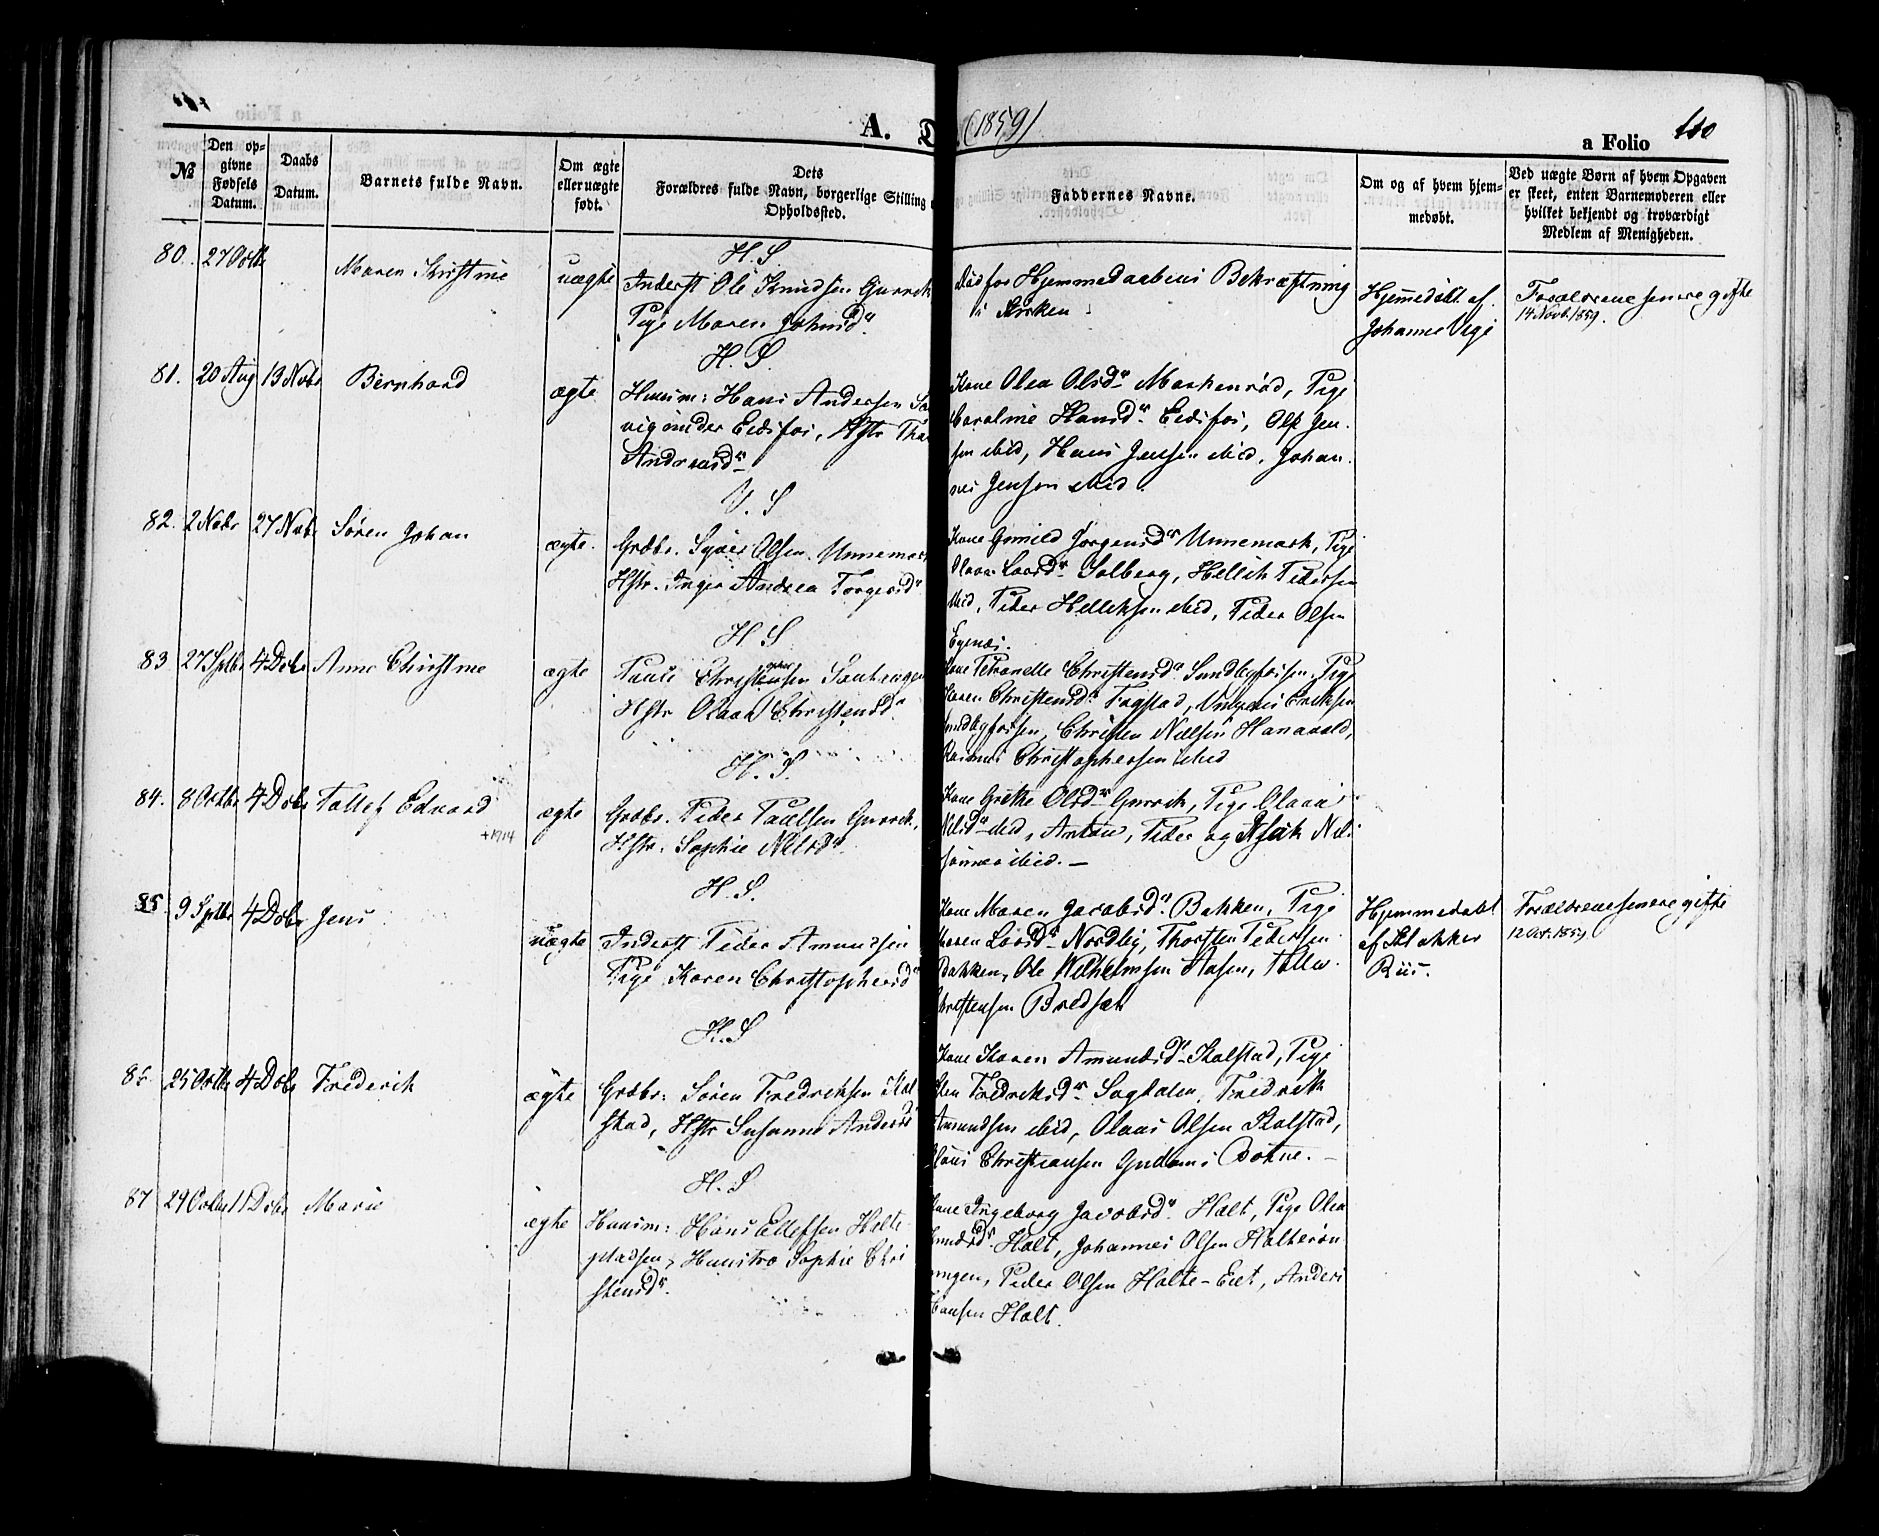 A. D. (1859)
a Folio 110
№
Den op-
givne
Fødsels
Datum.
Daabs
Datum.
Barnets fulde Navn.
Om ægte
eller uægte
født.
Dets
Forældres fulde Navn, borgerlige Stilling
Opholdssted.
Faddernes Navne.
Om og af hvem hjem-
medøbt.
Ved uægte Børn af hvem Opgaven
er skeet, enten Barnemoderen eller
hvilket bekjendt og troværdigt
Medlem af Menigheden.
H. S
80. 27 Octb Maren Kirstine uægte
Inderst Ole Knudsen Gurrik
Pige Maren Johnsd.
Død før Hjemmedaabens Bekræftning
i Kirken
Hjemmedøbt af
Johanne Vegi
Forældrene senere gifte
14 Novb. 1859.
H. S.
81. 20 Aug 13 Nobr Bernhard ægte
Huusm: Hans Andersen
vig under Eidsfos, Hstr
Andreasd
Kone Olea Olsd Markenrød, Pige
Hansd Eidsfos, Ole Jen-
sen ibid, Hans Jensen ibid, Johan-
nes Jensen ibid.
V. S
82. 2 Nobr 27 Nobr Søren Johan ægte.
Grdbr. Syver Olsen Unnemark
Hstr. Inger Andrea Torgersd
Kone Gunild Jørgensd Unnemark, Pige
Olava Larsd Solberg, Hellik Pedersen
ibid, Peder Helliksen ibid, Peder Olsen
Egenæs.
H S
83 27 Sptbr 4 Dcbr Anne Christine ægte
Paul Christensen
Hstr Olava Christensd
Kone Petronelle Christensd Sundbyfossen, Pige
Karen Christensd Fagstad, Eriksen
Sundbyfossen, Christen Nielsen Hanavold,
Rasmus Christophersen ibid
H. S.
84. 8 Octbr 4 Dcbr Tollef Edvard ægte
+1914
Grdbr. Peder Paulsen Gurrik,
Hstr. Sophie Nilsd
Kone Grethe Olsd Gurrik, Pige Olava
Nilsd ibid, Anton, Peder og Nil-
sønner ibid. —
H. S.
85. 9 Sptbr 4 Dcbr Jens uægte
Inderst Peder Amundsen
Pige Karen Christophersd
Kone Maren Jacobsd Bakken, Pige
Maren Larsd Nordby, Thorsten Pedersen
Bakken, Ole Wilhelmsen Aasen, Tollev
Christensen Bredsæt
Hjemmedøbt
af
Riis.
Forældrene senere gifte
12 Oct. 1859
H. S
86. 25 Octbr 4 Dcbr Frederik ægte
Grdbr: Søren Fredriksen Kal-
stad, Hstr Susanne Andersd
Kone Karen Amundsd Kalstad, Pige
Fredriksd Sagdalen, Fredrik
Amundsen ibid, Olaus Olsen Kalstad,
Claus Christiansen i Botne. —
H. S
87 29 Octbr 11 Dcbr Marie ægte
Huusm: Hans Ellefsen Holte-
pladsen, Huustro Sophie Chri-
stensd.
Kone Ingeborg Jacobsd Holt, Pige Olea
Holt, Johannes Olsen Holterøn-
ningen, Peder Olsen Holte-Eiet, Anders
Hansen Holt.